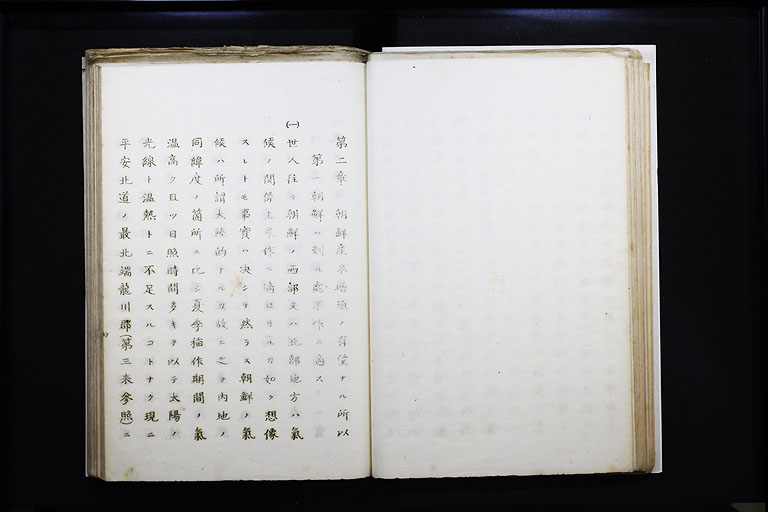 第二章 朝鮮産米増殖ノ有望ナル所以
第一 朝鮮ハ到ル處米作ニ適ス
(一)世人往々朝鮮ノ西部又ハ北部地方ハ氣
候ノ関係上米作ニ適セサルカ如ク想像
スレトモ事實ハ决シテ然ラス朝鮮ノ氣
候ハ所謂大陸的ナルカ故ニ之ヲ内地ノ
同緯度ノ箇所ニ比シ夏季稲作期間ノ氣
温高ク且ツ日照時間多キヲ以テ太陽ノ
光線ト温熱トニ不足スルコトナク現ニ
平安北道ノ最北端龍川郡(第三表參照)ニ